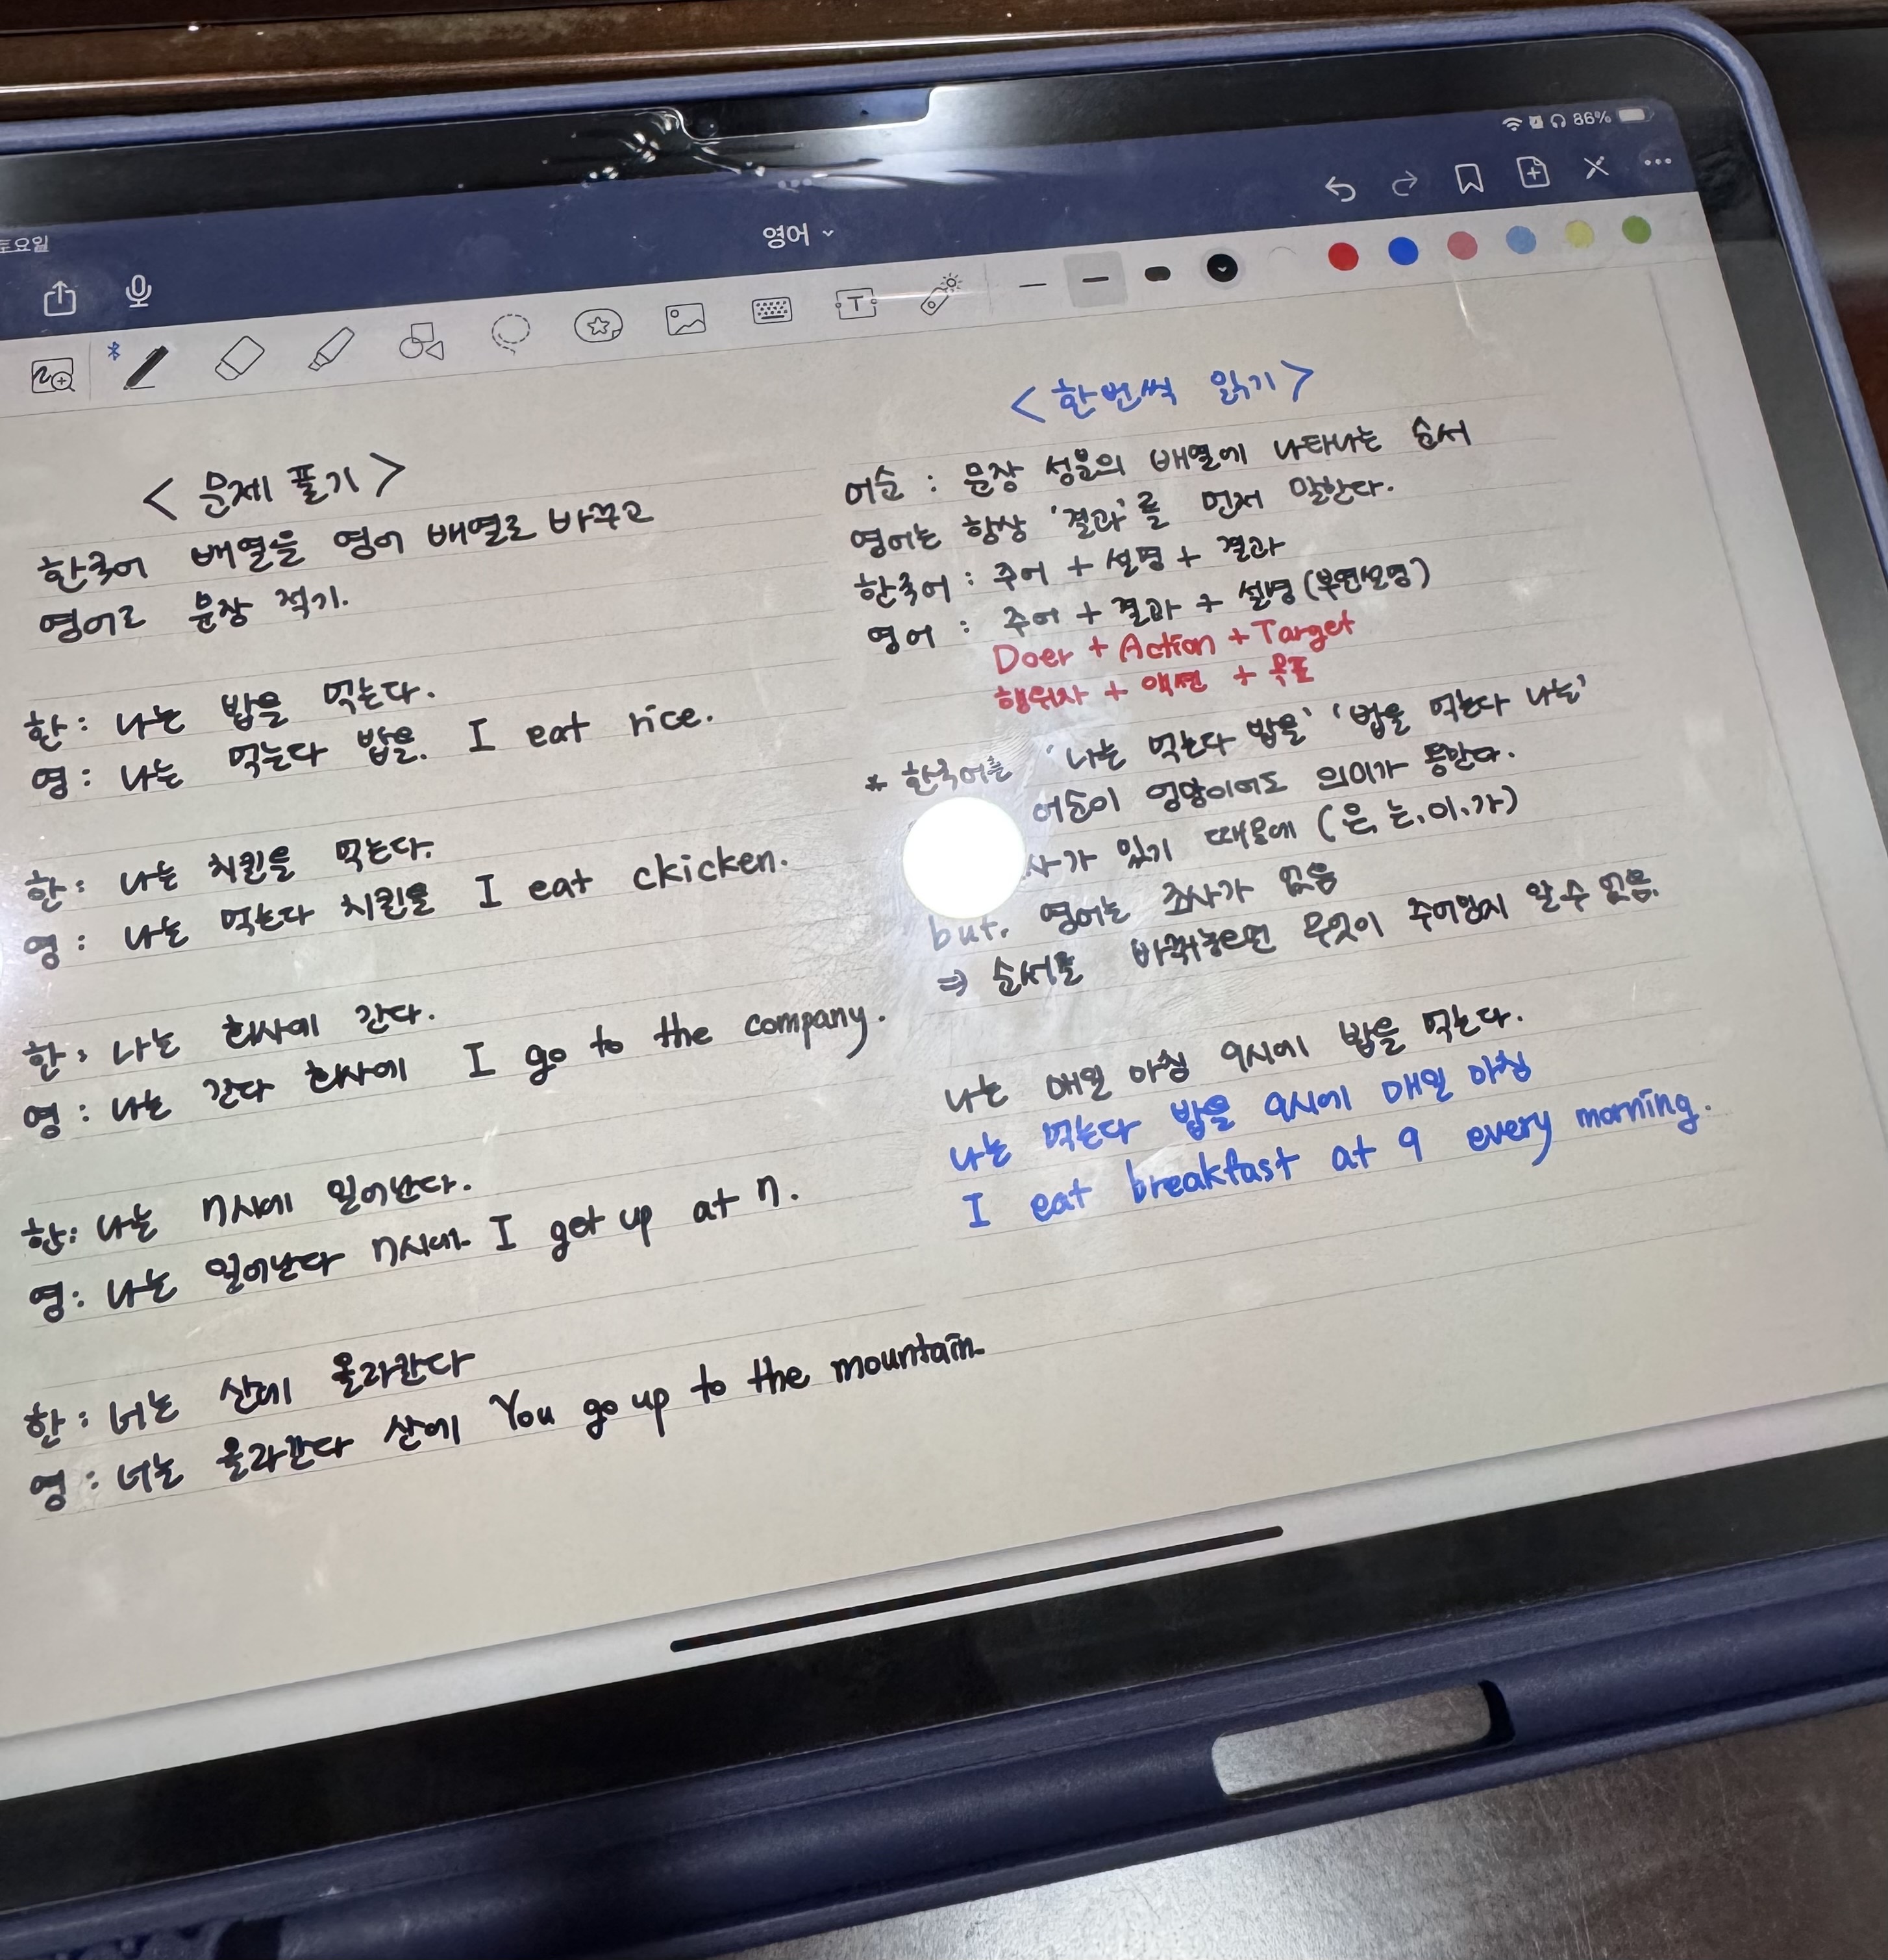 86%
토요일
영어
T
< 문제 풀기 >
한국어 배열을 영어 배열로 바꾸고
영어로 문장 적기.
한: 나는 밥을 먹는다.
영: 나는 먹는다 밥을. I eat rice.
한: 나는 치킨을 먹는다.
영: 나는 먹는다 치킨을 I eat ckicken.
한: 나는 회사에 간다.
영: 나는 간다 회사에 I go to the company.
한: 나는 7시에 일어난다.
영: 나는 일어난다 7시에 I get up at 7.
한: 너는 산에 올라간다
영: 너는 올라간다 산에 You go up to the mountain.
< 한번씩 읽기 >
어순 : 문장 성분의 배열에 나타나는 순서
영어는 항상 '결과'를 먼저 말한다.
한국어 : 주어 + 설명 + 결과
영어 : 주어 + 결과 + 설명 (부연설명)
Doer + Action + Target
행위자 + 액션 + 목표
* 한국어는 '나는 먹는다 밥을' '밥을 먹는다 나는'
어순이 엉망이어도 의미가 통한다.
사가 있기 때문에 (은, 는, 이, 가)
but, 영어는 조사가 없음
⇒ 순서를 바꿔놓으면 무엇이 주어인지 알 수 없음.
나는 매일 아침 9시에 밥을 먹는다.
나는 먹는다 밥을 9시에 매일 아침
I eat breakfast at 9 every morning.